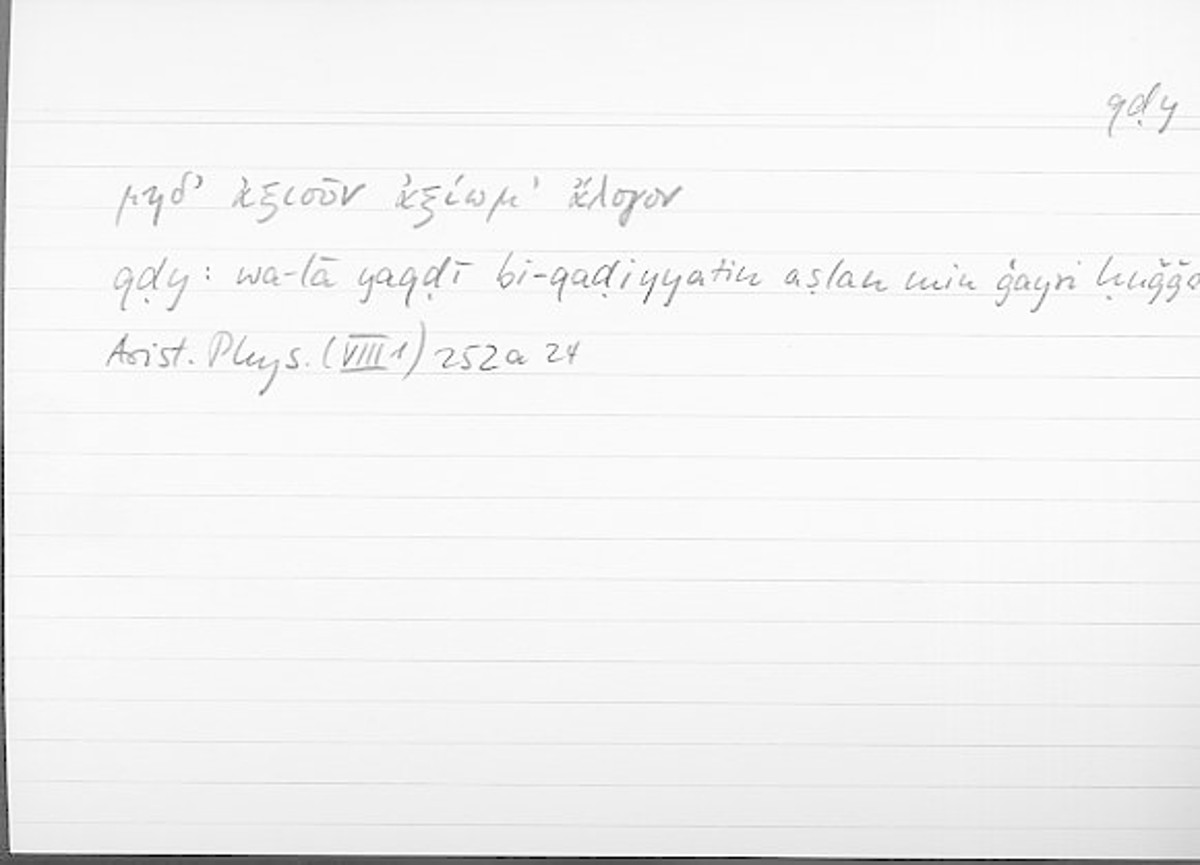 qḍy
μηδ' ἀξιοῦν ἀξίωμ' ἄλογον
qḍy: wa-lā yaqḍī bi-qaḍiyyatin aṣlan min ġayri ḥuǧǧa
Arist. Phys. (VIII 1) 252a 24